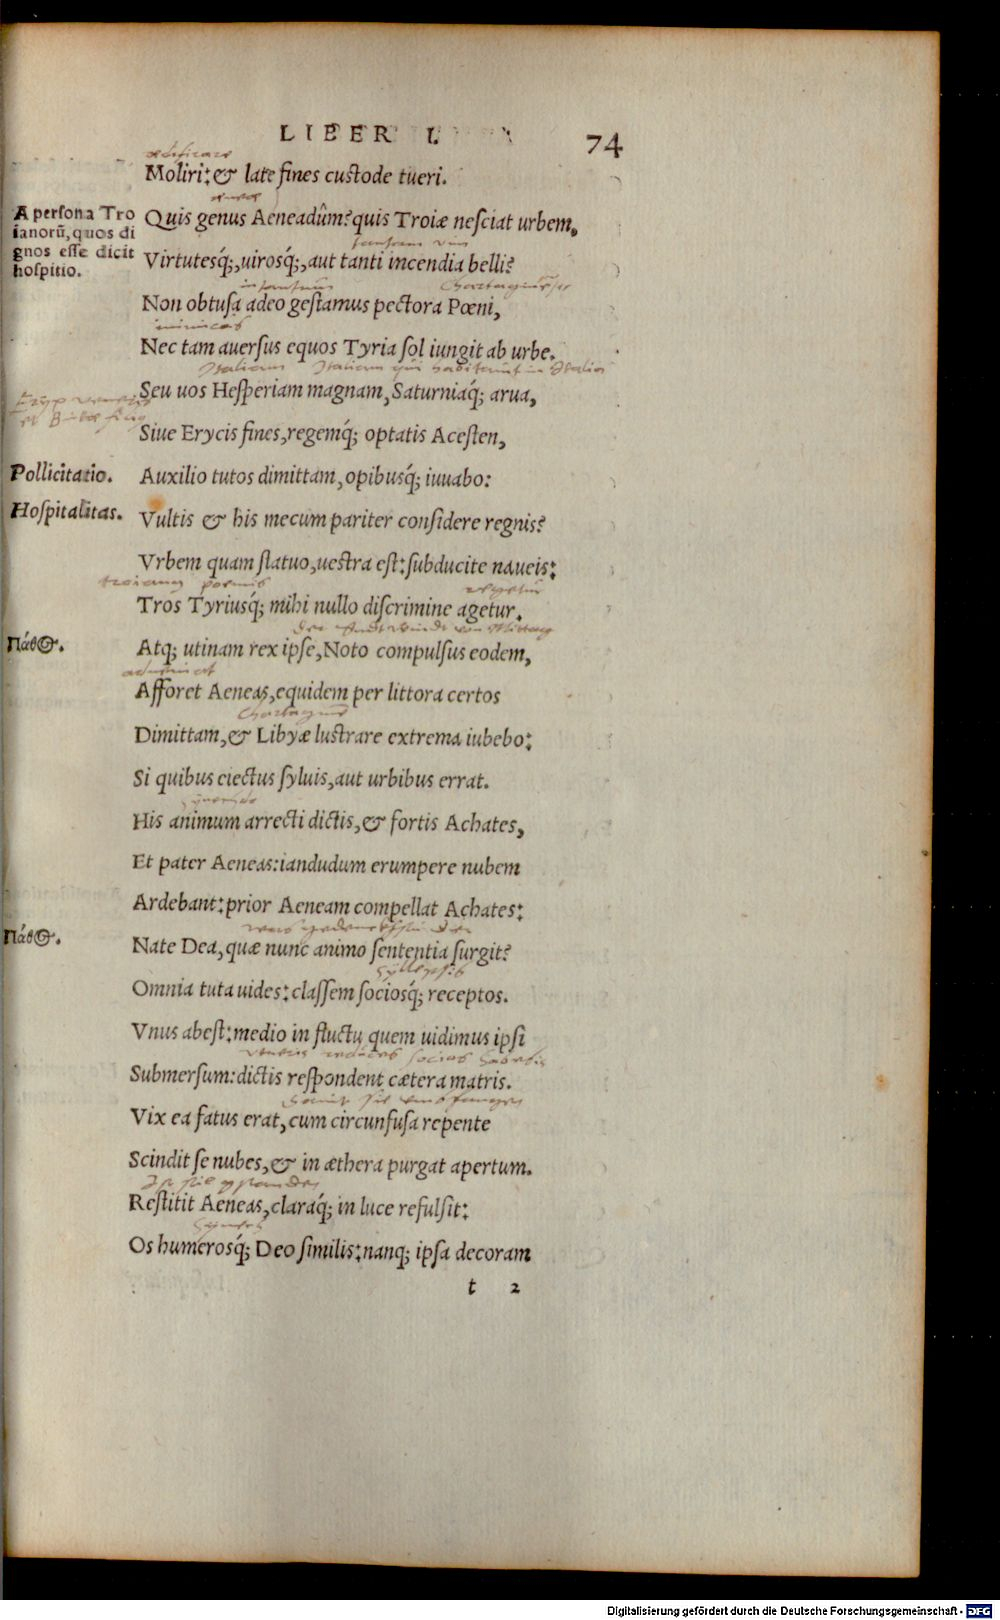 LIBER I.
74
ædificare
Moliri: & late fines custode tueri.
A persona Tro
ianorũ, quos di
gnos esse dicit
hospitio.
Quis genus Aeneadûm? quis Troiæ nesciat urbem,
Virtutesq́;, uirosq́;, aut tanti incendia belli?
Non obtusa adeo gestamus pectora Pœni,
inimicos
Nec tam auersus equos Tyria sol iungit ab urbe.
Italiam Italiam qui habitant in Italia
Seu uos Hesperiam magnam, Saturniaq́; arua,
Siue Erycis fines, regemq́; optatis Acesten,
Pollicitatio.
Auxilio tutos dimittam, opibusq́; iuuabo:
Hospitalitas.
Vultis & his mecum pariter considere regnis?
Vrbem quam statuo, uestra est: subducite naueis:
troianus poenus
regetur
Tros Tyriusq́; mihi nullo discrimine agetur.
Πάθος.
Atq; utinam rex ipse, Noto compulsus eodem,
Afforet Aeneas, equidem per littora certos
Dimittam, & Libyæ lustrare extrema iubebo:
Si quibus eiectus syluis, aut urbibus errat.
His animum arrecti dictis, & fortis Achates,
Et pater Aeneas: iandudum erumpere nubem
Ardebant: prior Aeneam compellat Achates:
Πάθος.
Nate Dea, quæ nunc animo sententia surgit?
Syllepsis
Omnia tuta uides: classem sociosq́; receptos.
Vnus abest: medio in fluctu quem uidimus ipsi
Veneris reduces socios
Submersum: dictis respondent cætera matris.
Vix ea fatus erat, cum circunfusa repente
Scindit se nubes, & in æthera purgat apertum.
Restitit Aeneas, claraq́; in luce refulsit:
Os humerosq́; Deo similis: nanq; ipsa decoram
t 2
Digitalisierung gefördert durch die Deutsche Forschungsgemeinschaft - DFG